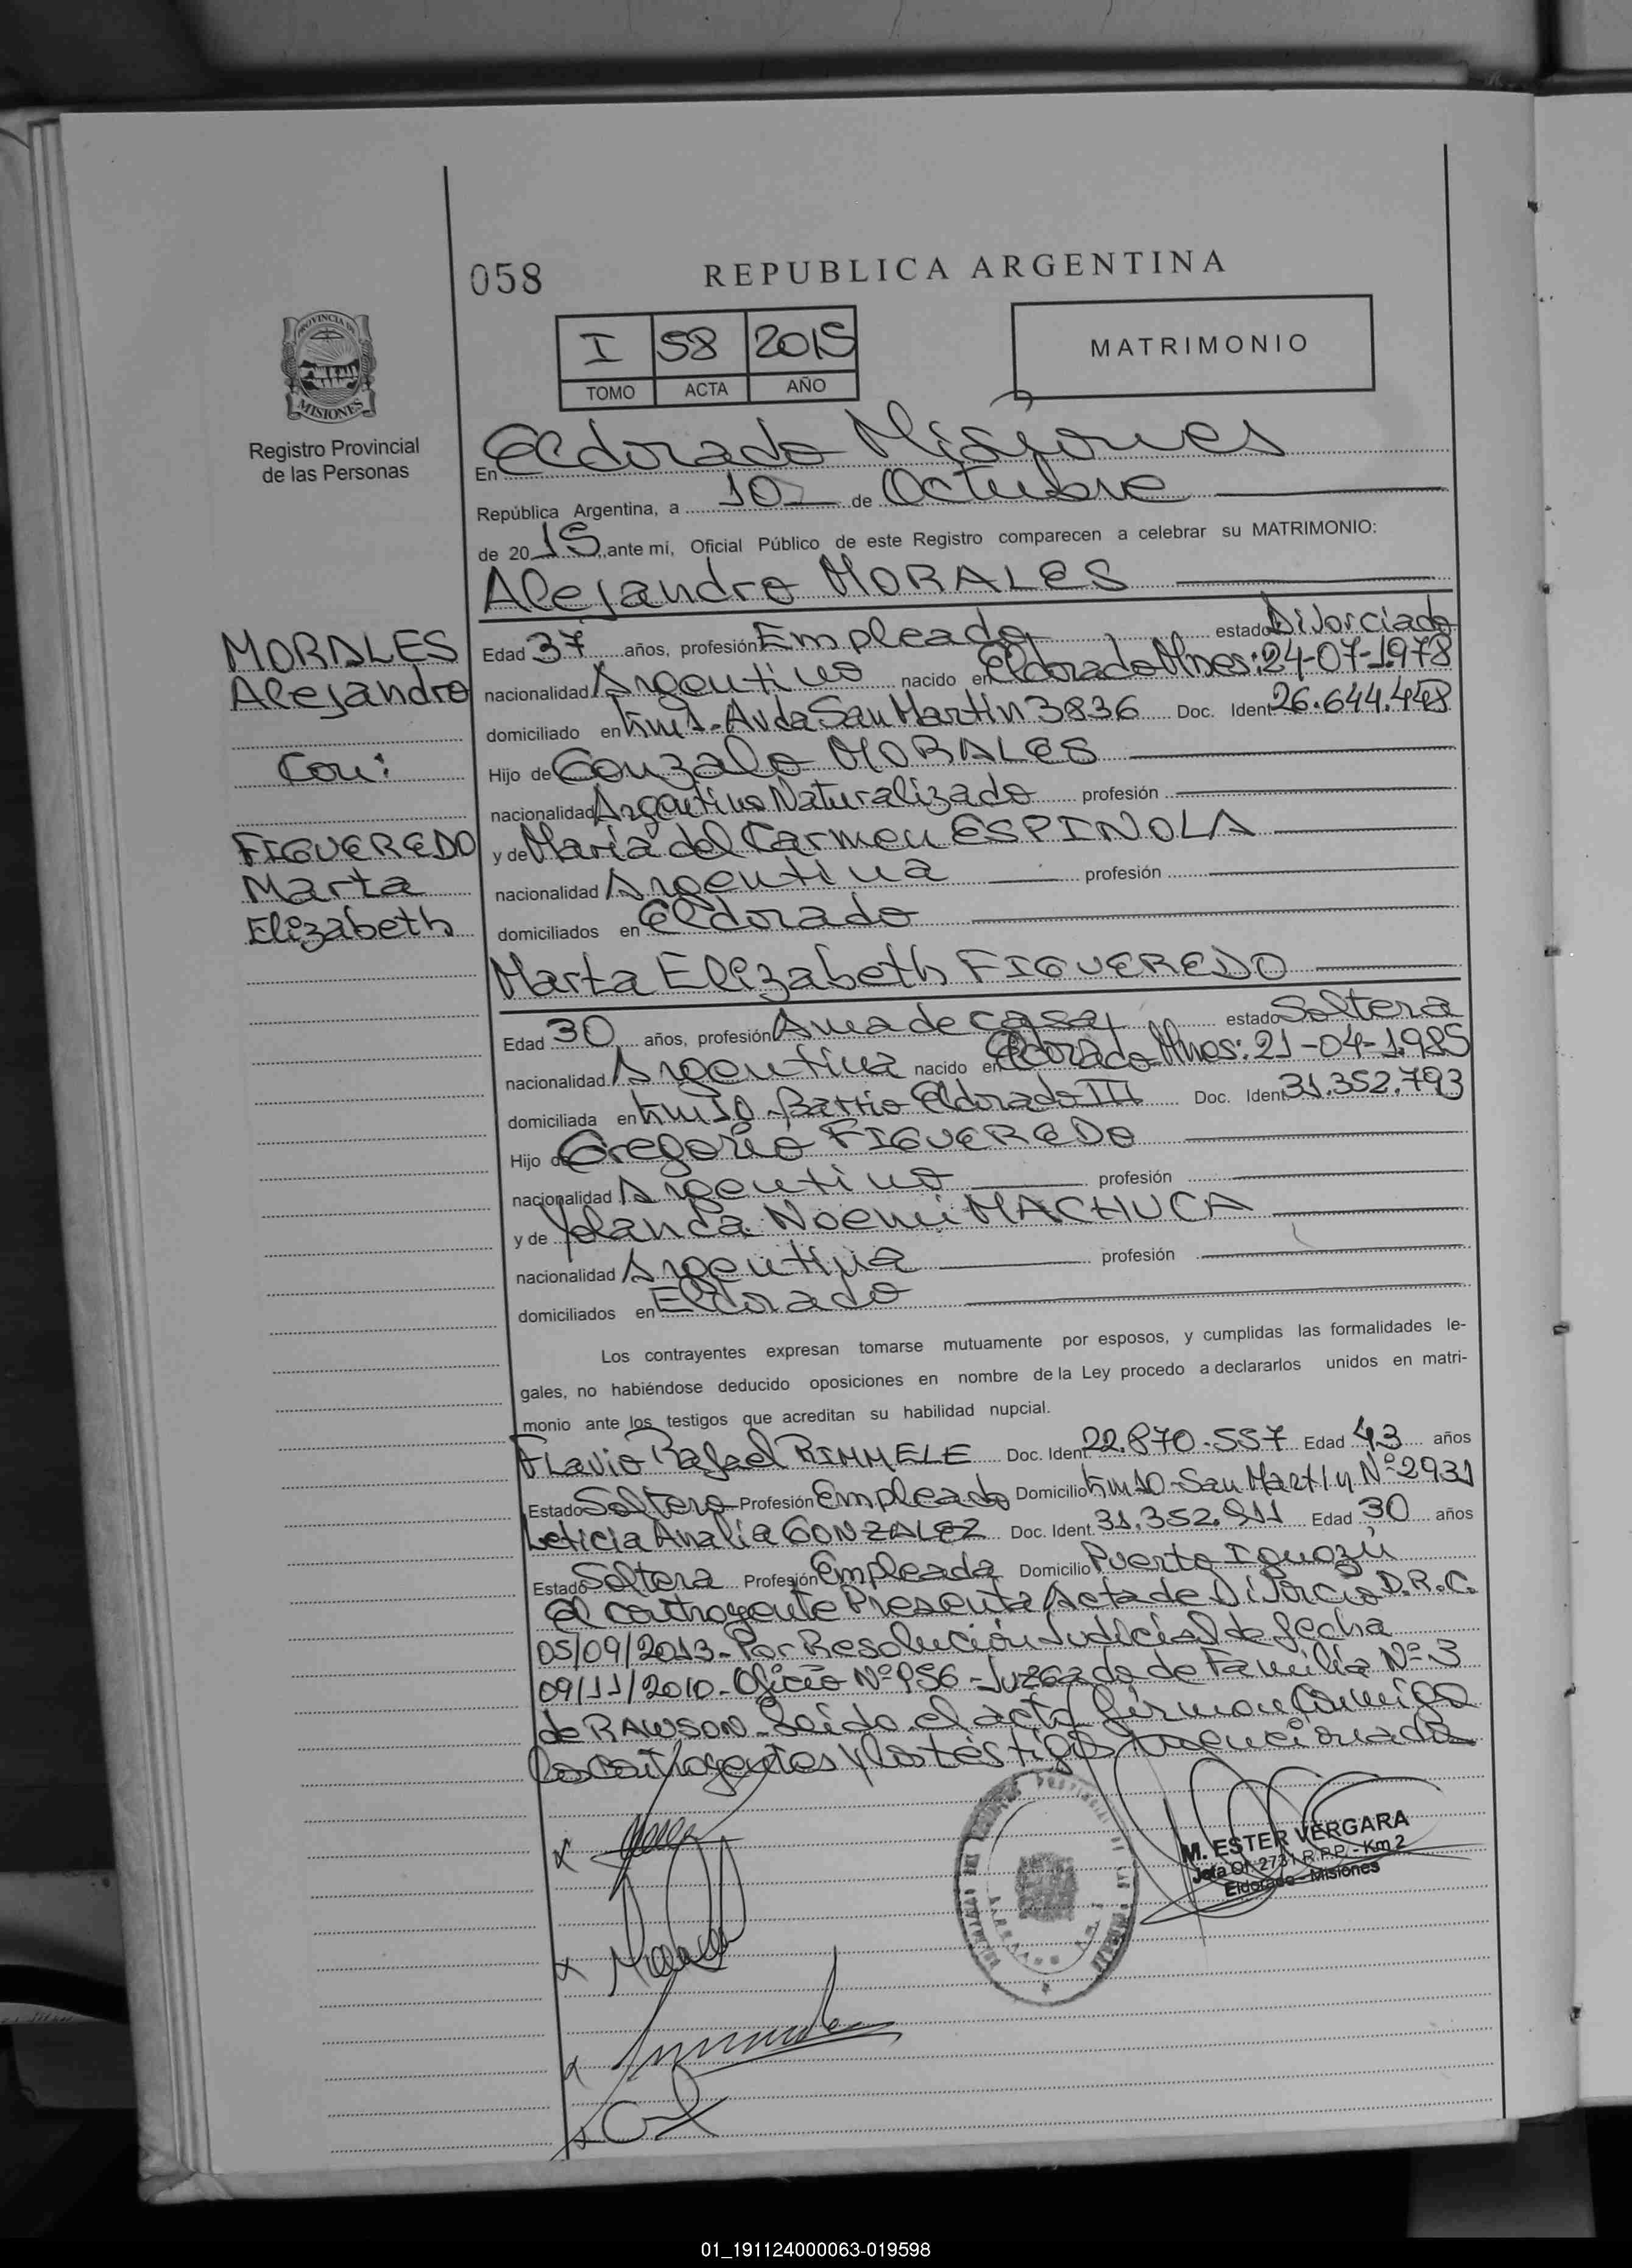 058
REPUBLICA ARGENTINA
PROVINCIA DE
MISIONES
Registro Provincial
de las Personas
I 58 2015
TOMO ACTA AÑO
MATRIMONIO
En Eldorado Misiones
República Argentina, a 10 de Octubre
de 2015 ante mi, Oficial Público de este Registro comparecen a celebrar su MATRIMONIO:
Alejandro MORALES
MORALES
Alejandro
Con:
FIGUEREDO
Marta
Elizabeth
Edad 37 años, profesión Empleado estado Divorciado
nacionalidad Argentino nacido en Eldorado Mnes: 24-07-1978
domiciliado en Km 1-Avda San Martin 3836 Doc. Ident. 26.644.448
Hijo de Gonzalo MORALES
nacionalidad Argentino Naturalizado profesión
y de Maria del Carmen ESPINOLA
nacionalidad Argentina profesión
domiciliados en Eldorado
Marta Elizabeth FIGUEREDO
Edad 30 años, profesión Ama de casa estado Soltera
nacionalidad Argentina nacido en Eldorado Mnes: 21-04-1985
domiciliada en Km 10 Barrio Eldorado III Doc. Ident 31.352.793
Hijo de Gregorio FIGUEREDO
nacionalidad Argentino profesión
y de Yolanda Noemi MACHUCA
nacionalidad Argentina profesión
domiciliados en Eldorado
Los contrayentes expresan tomarse mutuamente por esposos, y cumplidas las formalidades le-
gales, no habiéndose deducido oposiciones en nombre de la Ley procedo a declararlos unidos en matri-
monio ante los testigos que acreditan su habilidad nupcial.
Flavio Rafael RIMMELE Doc. Ident 22.870.557 Edad 43 años
Estado Soltero Profesión Empleado Domicilio Km 10-San Martin Nº 2931
Leticia Analia GONZALEZ Doc. Ident. 31.352.911 Edad 30 años
Estado Soltera Profesión Empleada Domicilio Puerto Iguazú
El contrayente Presenta Acta de Divorcio D.R.C.
05/09/2013-Por Resolución Judicial de fecha
09/11/2010-Oficio Nº 956-Juzgado de Familia Nº 3
de RAWSON-Leido el acta firman conmigo
los contrayentes y los testigos mencionados
M. ESTER VERGARA
Jefa Of. 2731 R.P.P. - Km 2
Eldorado - Misiones
01_191124000063-019598